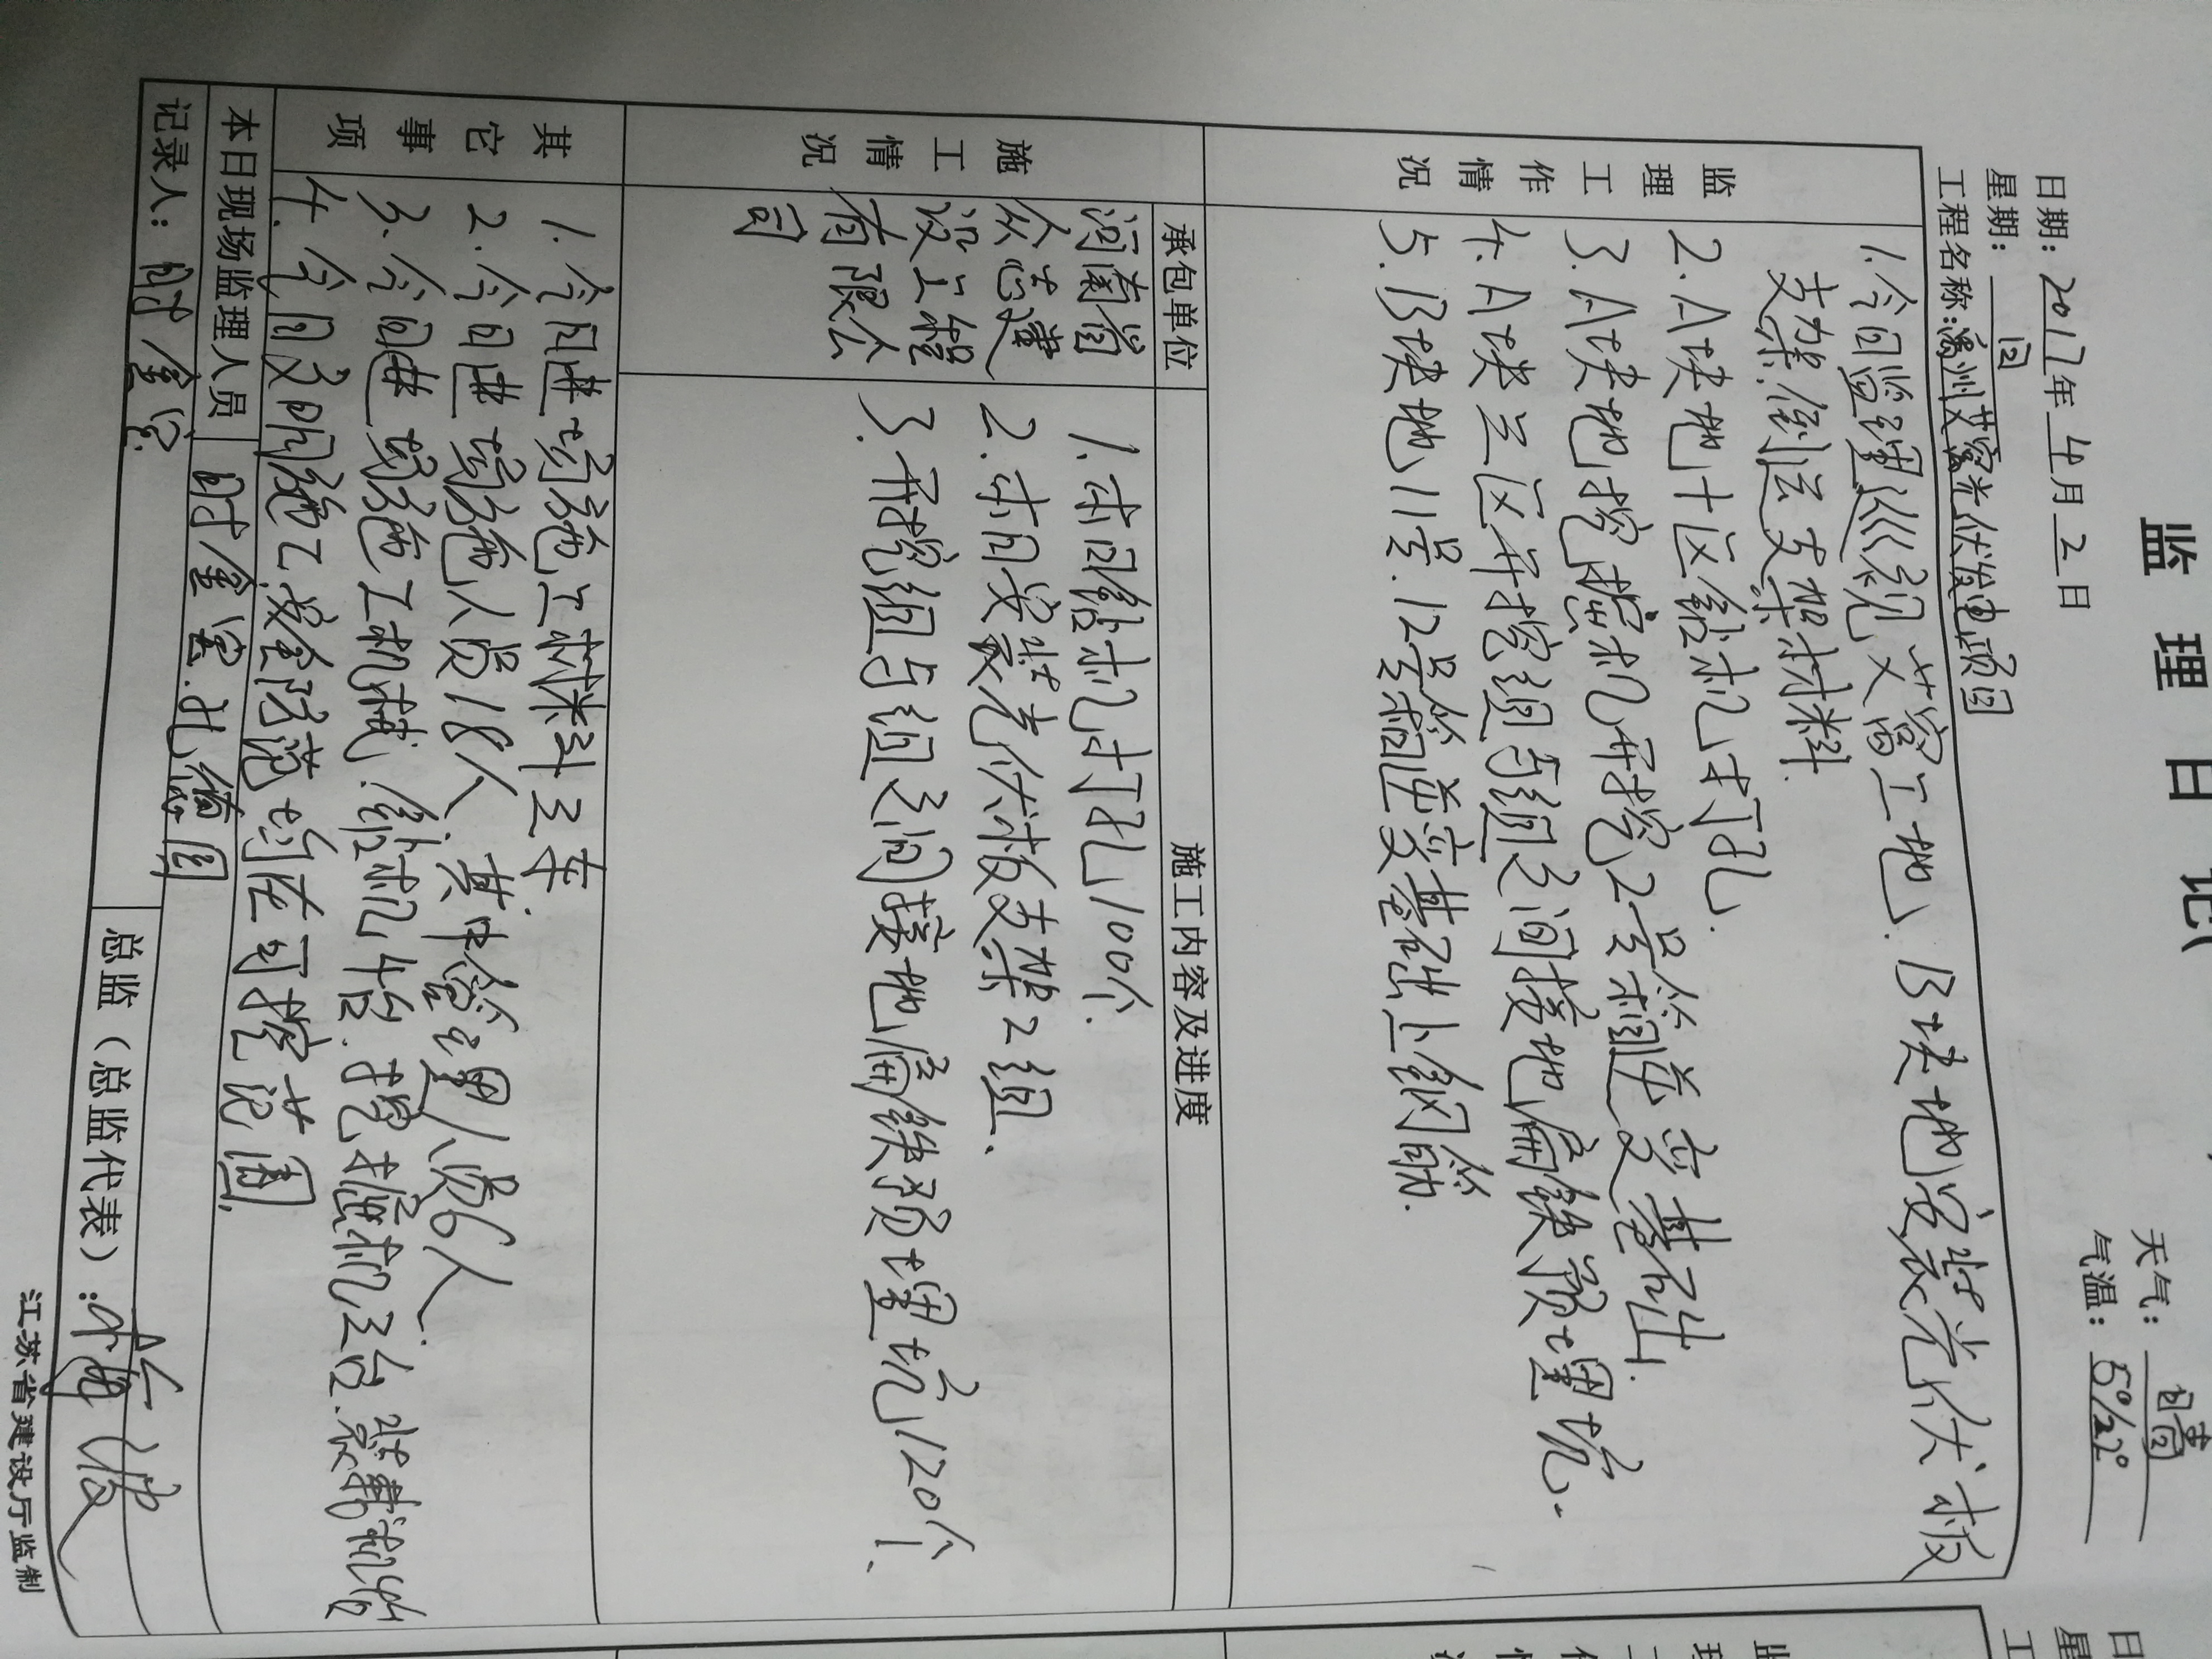 监理日记
日期：2017年4月2日
天气：晴
星期：日
气温：5°/22°
工程名称：禹州艾窑光伏发电项目
监理工作情况
1.今日监理巡视艾窑工地.B块地安装光伏板
支架.倒运支架材料.
2.A块地十区钻机打孔.
3.A块地挖掘机开挖2号箱逆变基础.
4.A块三区开挖组与组之间接地扁铁预埋坑.
5.B块地11号.12号箱逆变基础上绑钢筋.
施工情况
承包单位
施工内容及进度
河南省
众志建
设工程
有限公
司
1.本日钻机打孔100个.
2.本日安装光伏板支架2组.
3.开挖组与组之间接地扁铁预埋坑120个.
其它事项
1.今日进场施工材料三车
2.今日进场施人员18人.其中管理人员6人.
3.今日进场施工机械.钻机4台.挖掘机三台.装载机1台
4.今日文明施工.安全防范均在可控范围.
本日现场监理人员
时金宝.孔德因
记录人：时金宝
总监（总监代表）：
江苏省建设厅监制